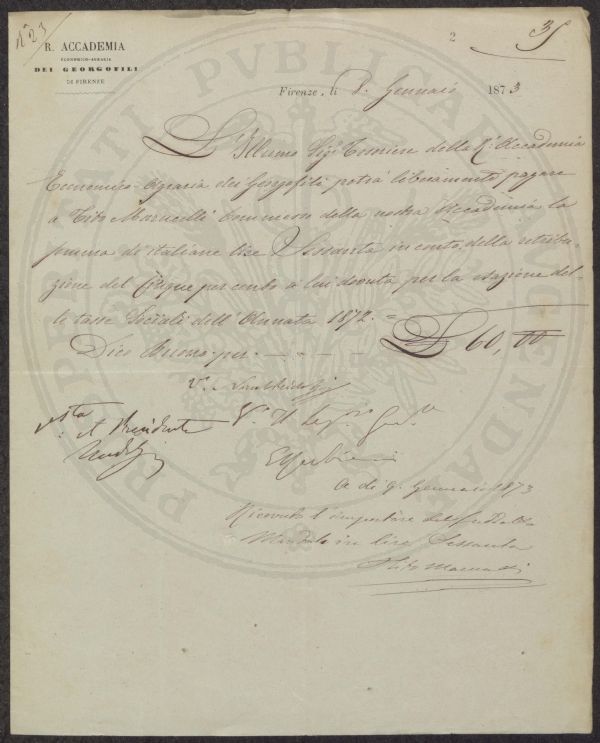 N° 23
R. ACCADEMIA
ECONOMICO-AGRARIA
DEI GEORGOFILI
DI FIRENZE
2
Firenze, li 8. Gennaio 1873
L'Illumo Sigr Tesoriere della Rl Accademia
Economico-Agraria dei Georgofili potrà liberamente pagare
a Tito Marucelli Commesso della nostra Accademia la
somma di italiane lire Sessanta in conto della retribu-
zione del Cinque per cento a lui dovuta per la esazione del-
le tasse Sociali dell'Annata 1872. =
Dico Buono per - - - £ 60,00
Vto Il Presidente
V. Il Segro
A dì 9. Gennaio 1873
Ricevuto l'importare del
Mandato in lire Sessanta
Tito Marucelli
PROSPERITATI PUBLICAE AUGENDAE